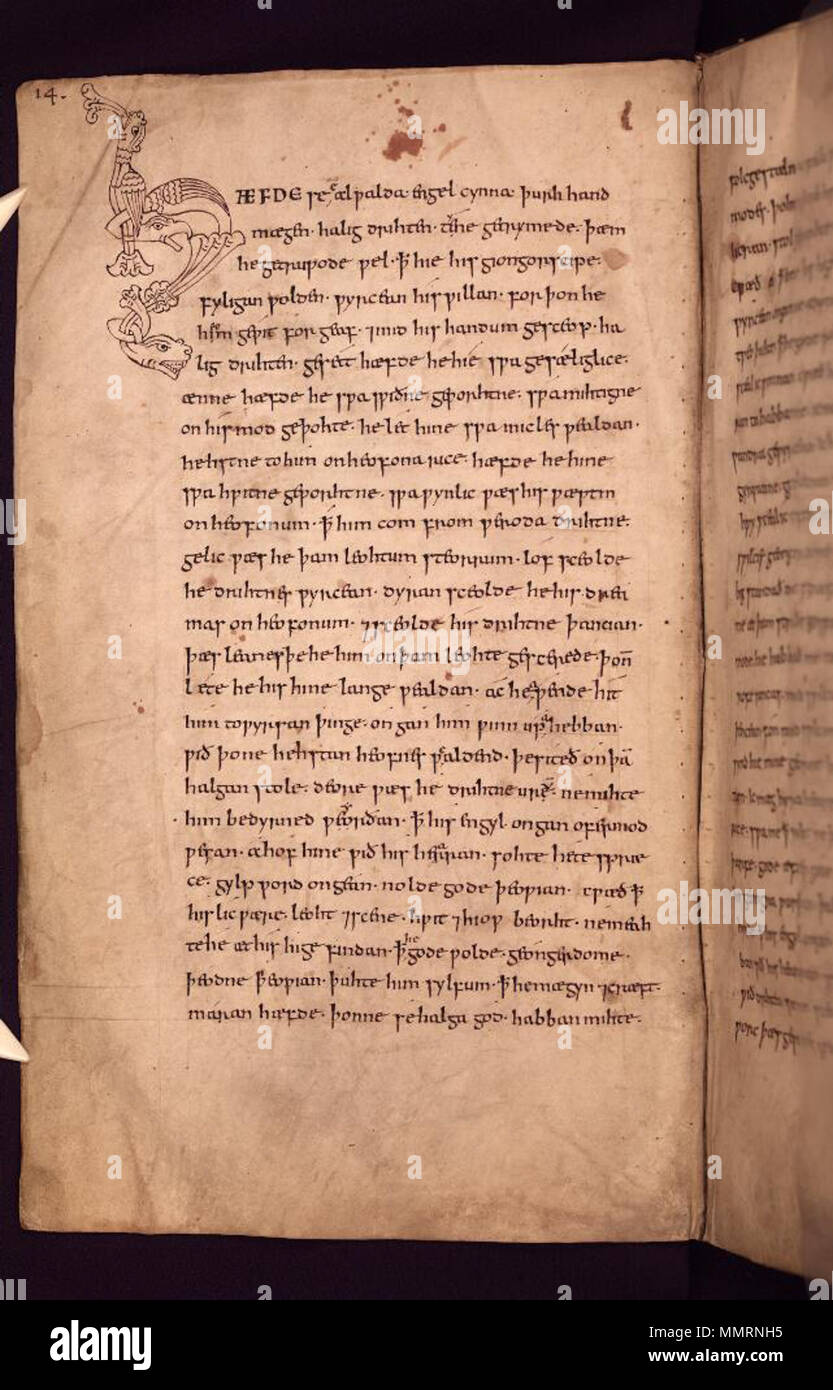 14.
HÆFDE se ælƿalda engel cynna þurh hand
mægen· halig drihten· tene getrymede· þæm
he getruƿode ƿel· ꝥ hie his giongorscipe·
fyligan ƿolden· ƿyrcean his ƿillan· forþon he
him geƿit forgeaf· ⁊ mid his handum gesceop· ha
lig drihten· gesett hæfde he hie sƿa gesæliglice·
ænne hæfde he sƿa sƿiðne geƿorhtne· sƿa mihtigne
on his mod geþohte· he let hine sƿa micles ƿealdan·
hehstne to him on heofona rice· hæfde he hine
sƿa hƿitne geƿorhtne· sƿa ƿynlic ƿæs his ƿæstm
on heofonum· ꝥ him com from ƿeroda drihtne·
gelic ƿæs he þam leohtum steorrum· lof sceolde
he drihtnes ƿyrcean· dyran sceolde he his drea
mas on heofonum· ⁊ sceolde his drihtne þancian·
þæs leanes þe he him on þam leohte gescerede· þoñ
læte he his hine lange ƿealdan· ac he aƿende hit
him to ƿyrsan þinge· ongan him ƿinn up hebban·
ƿið þone hehstan heofnes ƿaldend· þe siteð on þā
halgan stole· deore ƿæs he drihtne ure· ne mihte
him bedyrned ƿeorðan· ꝥ his engyl ongan ofermod
ƿesan· ahof hine ƿið his hearran· sohte hete spræ
ce· gylp ƿord ongean· nolde gode þeoƿian· cƿæð ꝥ
his lic ƿære· leoht ⁊ scene· hƿit ⁊ hioƿ beorht· ne meah
te he æt his hige findan· ꝥ he gode ƿolde· geongerdome·
þeodne þeoƿian· þuhte him sylfum· ꝥ he mægyn ⁊ cræft·
maran hæfde· þonne se halga god· habban mihte·
alamy
Image ID: MMRNH5
www.alamy.com